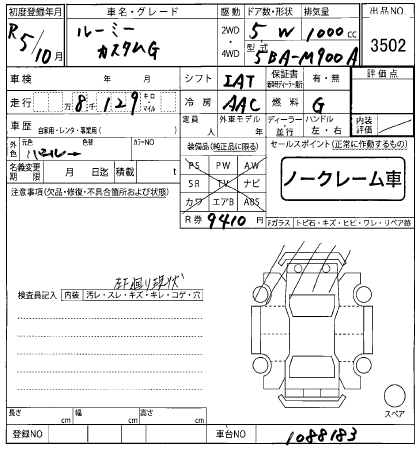 初度登録年月 車名・グレード 駆動 ドア数・形状 排気量 出品NO
R5/10月 ルーミー カスタムG 2WD 4WD 5W 1000cc
型式 5BA-M900A 3502
車検 年 月 シフト IAT 保証書 有・無 評価点
走行 万8千129 キロ・マイル 冷房 AAC 燃料 G
車歴 自家用・レンタ・事業用( ) 定員 人 外車モデル 年 ディーラー・並行 ハンドル 左・右 内装評価
外色 元色 色替 カラーNO パール
装備品(純正品に限る) セールスポイント(正常に作動するもの)
名義変更期限 月 日迄 積載 t
PS PW AW
SR TV ナビ
カワ エアB ABS
ノークレーム車
注意事項(欠品・修復・不具合箇所および状態)
R券 9410円
Fガラス トビ石・キズ・ヒビ・ワレ・リペア跡
現状
検査員記入 内装 汚レ・スレ・キズ・キレ・コゲ・穴
スペア
長さ cm 幅 cm 高さ cm
登録NO 車台NO 1088183